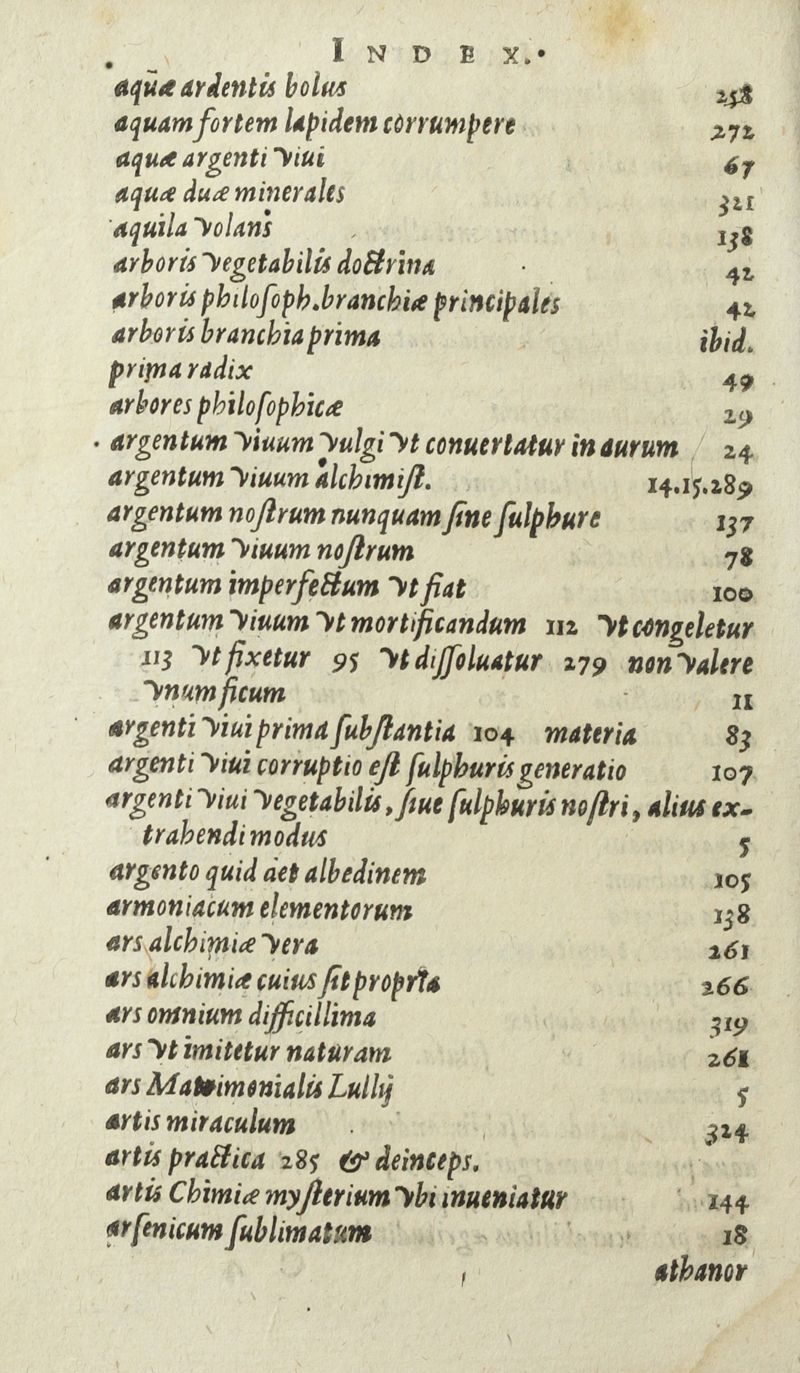 INDEX.
aquæ ardentis bolus 258
aquam fortem lapidem corrumpere 272
aquæ argenti viui 67
aquæ duæ minerales 321
aquila volans 138
arboris vegetabilis doctrina 42
arboris philosoph. branchiæ principales 42
arboris branchia prima ibid.
prima radix 49
arbores philosophicæ 29
argentum viuum vulgi vt conuertatur in aurum 24
argentum viuum alchimist. 14.15.289
argentum nostrum nunquam sine sulphure 137
argentum viuum nostrum 78
argentum imperfectum vt fiat 100
argentum viuum vt mortificandum 112 vt congeletur
113 vt fixetur 95 vt dissoluatur 279 non valere
vnum ficum 11
argenti viui prima substantia 104 materia 83
argenti viui corruptio est sulphuris generatio 107
argenti viui vegetabilis, siue sulphuris nostri, alius ex-
trahendi modus 5
argento quid det albedinem 105
armoniacum elementorum 138
ars alchimiæ vera 261
ars alchimiæ cuius sit propria 266
ars omnium difficillima 319
ars vt imitetur naturam 261
ars Matrimonialis Lullij 5
artis miraculum 324
artis practica 285 & deinceps.
artis Chimiæ mysterium vbi inueniatur 144
arsenicum sublimatum 18
athanor